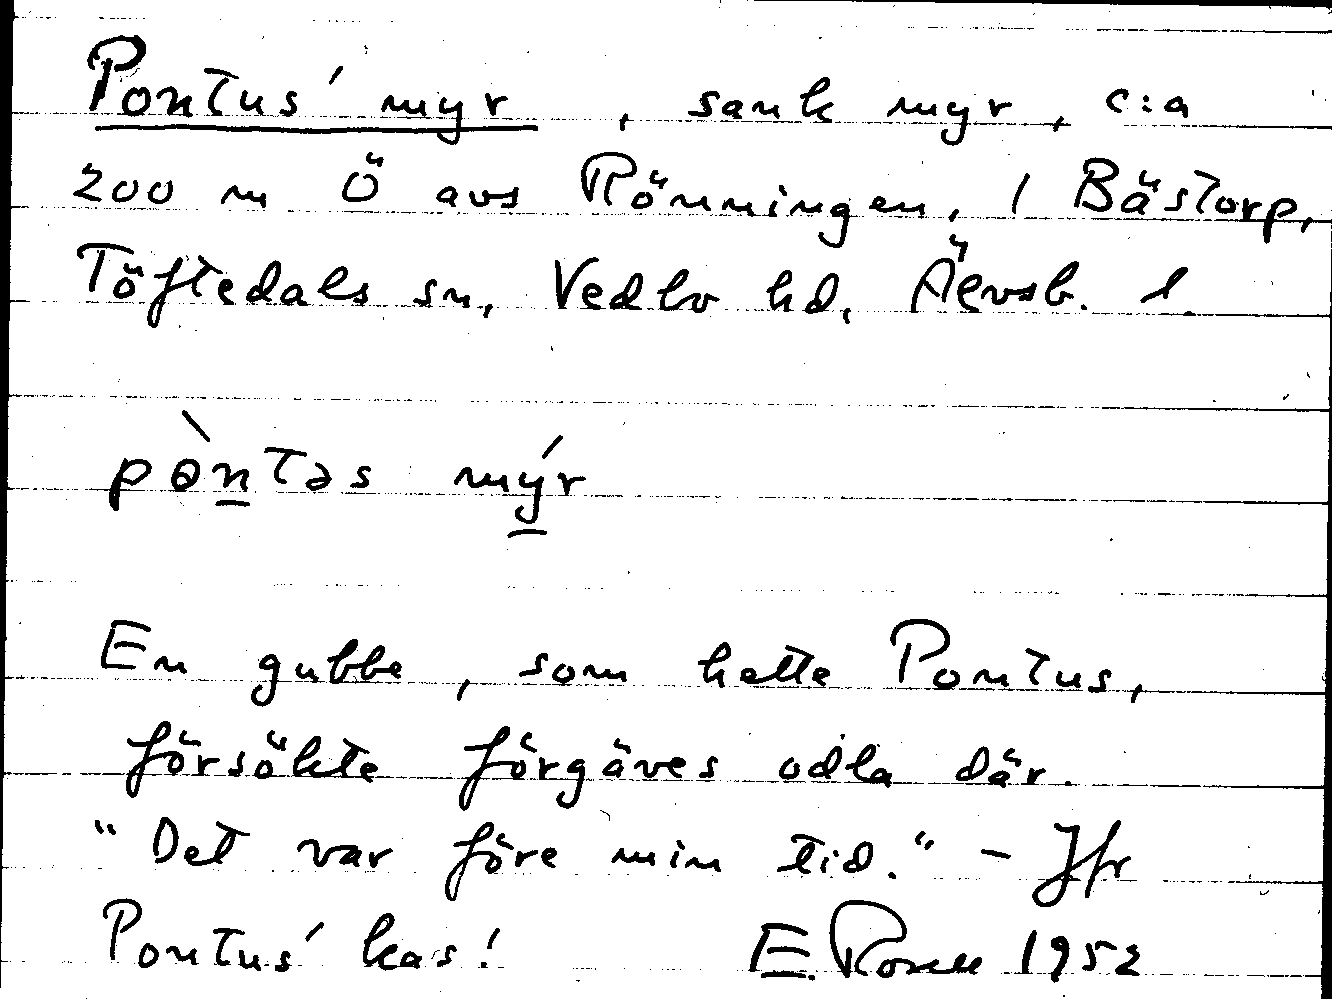 Pontus' myr, sank myr, c:a
200 m Ö avs Rönningen, 1 Bästorp,
Töftedals sn, Vedbo hd, Älvsb. l.
pòntəs mýr
En gubbe, som hette Pontus,
försökte förgäves odla där.
"Det var före min tid." - Jfr
Pontus' kas! E. Rosell 1952